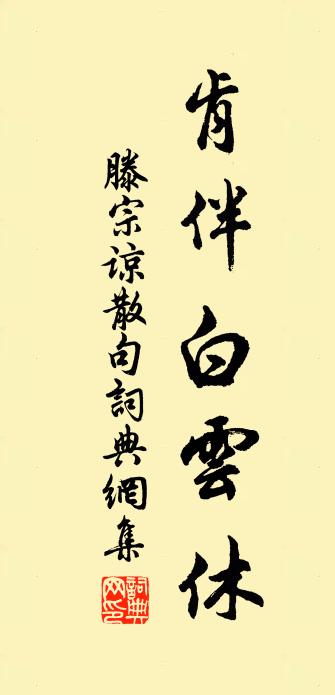 肯伴白雲休
滕宗諒散句詞典網集
詞典网印